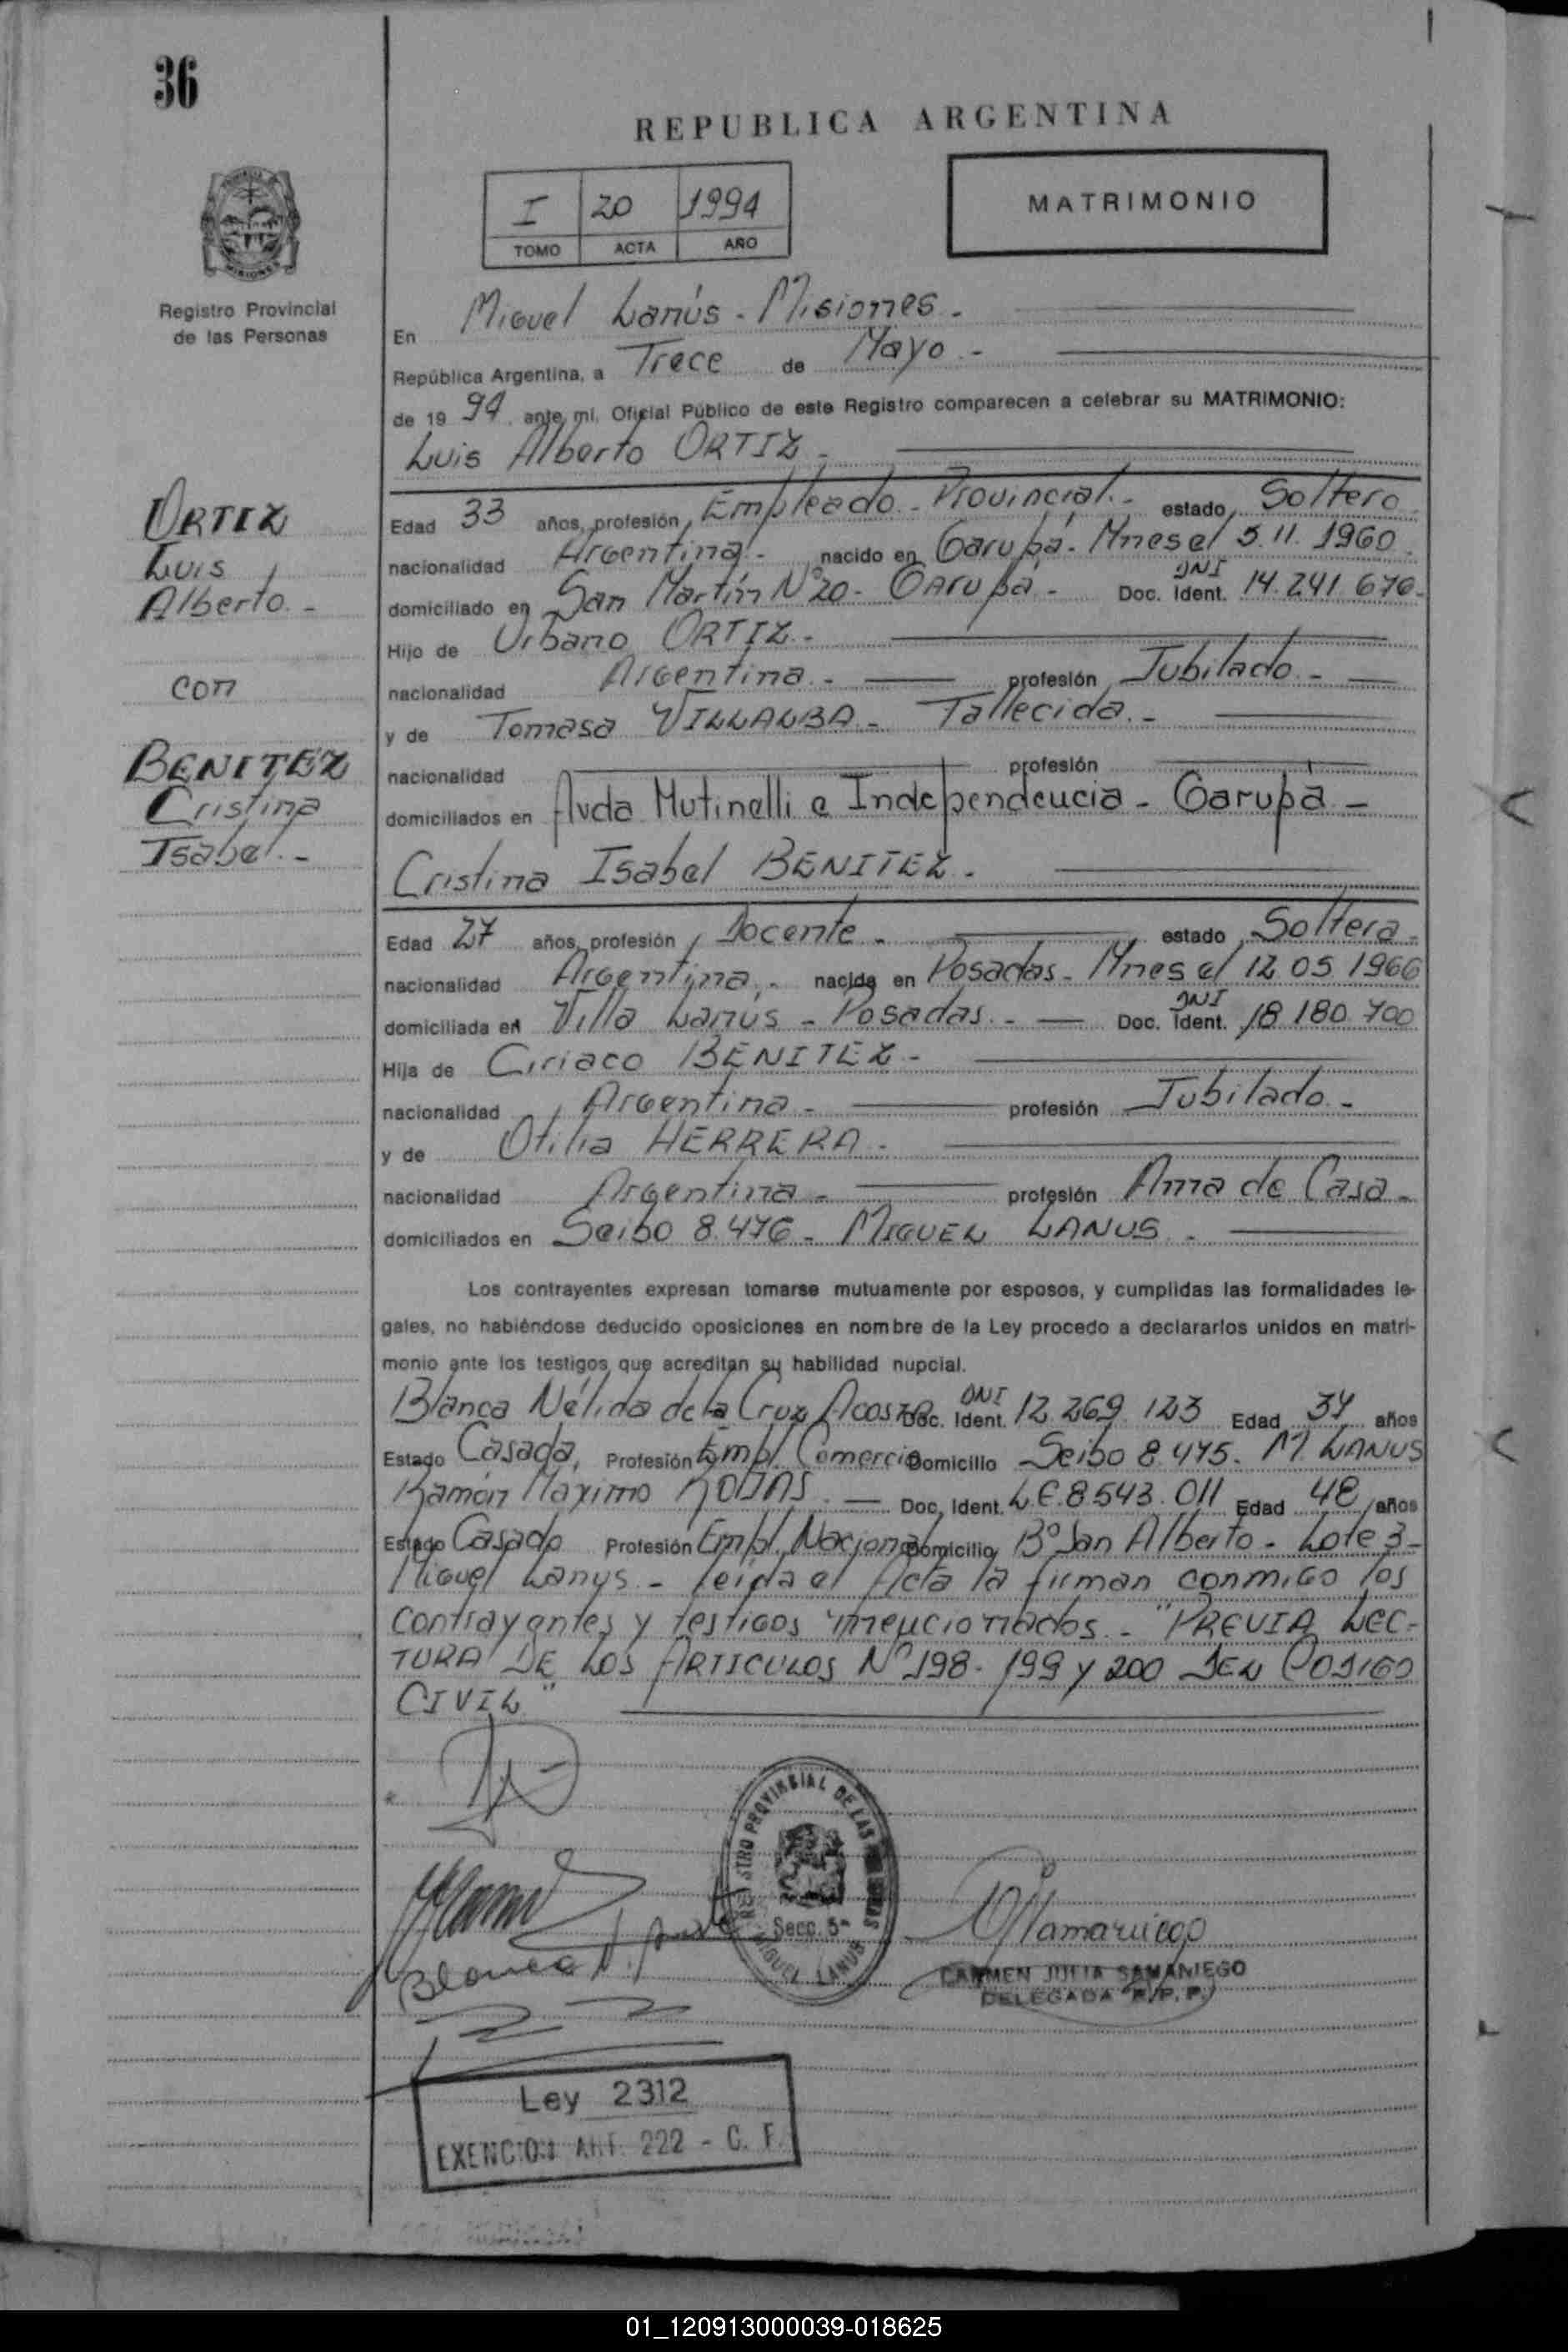 36
REPUBLICA ARGENTINA
I 20 1994
TOMO ACTA AÑO
MATRIMONIO
Registro Provincial
de las Personas
En Miguel Lanús - Misiones.-
República Argentina, a Trece de Mayo.-
de 19 94. ante mi, Oficial Público de este Registro comparecen a celebrar su MATRIMONIO:
Luis Alberto ORTIZ.-
ORTIZ
Luis
Alberto.-
con
BENITEZ
Cristina
Isabel.-
Edad 33 años, profesión, Empleado - Provincial.- estado, Soltero
nacionalidad Argentina.- nacido en Garupá - Mnes el 5.11.1960.
domiciliado en San Martín Nº 20 - Garupá - Doc. Ident. DNI 14.241.676-
Hijo de Urbano ORTIZ.-
nacionalidad Argentina.- profesión Jubilado.-
y de Tomasa VILLALBA - Fallecida.-
nacionalidad profesión
domiciliados en Avda Mutinelli e Independencia - Garupá -
Cristina Isabel BENITEZ.
Edad 27 años, profesión, Docente.- estado Soltera.
nacionalidad Argentina.- nacida en Posadas - Mnes el 12.05.1966
domiciliada en Villa Lanús - Posadas.- Doc. Ident. DNI 18.180.700
Hija de Ciriaco BENITEZ.-
nacionalidad Argentina.- profesión Jubilado.-
y de Otilia HERRERA.-
nacionalidad Argentina.- profesión Ama de Casa.
domiciliados en Seibo 8.476 - MIGUEL LANUS.-
Los contrayentes expresan tomarse mutuamente por esposos, y cumplidas las formalidades le-
gales, no habiéndose deducido oposiciones en nombre de la Ley procedo a declararlos unidos en matri-
monio ante los testigos que acreditan su habilidad nupcial.
Blanca Nélida de la Cruz Acosta Doc. Ident. DNI 12.269.123 Edad 37 años
Estado Casada, Profesión Empl. Comercio Domicilio Seibo 8.475. M. LANUS
Ramón Máximo ROJAS.- Doc. Ident. L.E. 8.543.011 Edad 48 años
Estado Casado Profesión Empl. Nacional Domicilio Bº San Alberto - Lote 3-
Miguel Lanus - leída el Acta la firman conmigo los
contrayentes y testigos mencionados.- "PREVIA LEC-
TURA DE LOS ARTICULOS Nº 198- 199 y 200 DEL CODIGO
CIVIL"
REGISTRO PROVINCIAL DE LAS PERSONAS
Secc. 5ª
MIGUEL LANUS
Blanca
CARMEN JULIA SAMANIEGO
DELEGADA R.P.P.
Ley 2312
EXENCION ART. 222 - C. F.
01_120913000039-018625